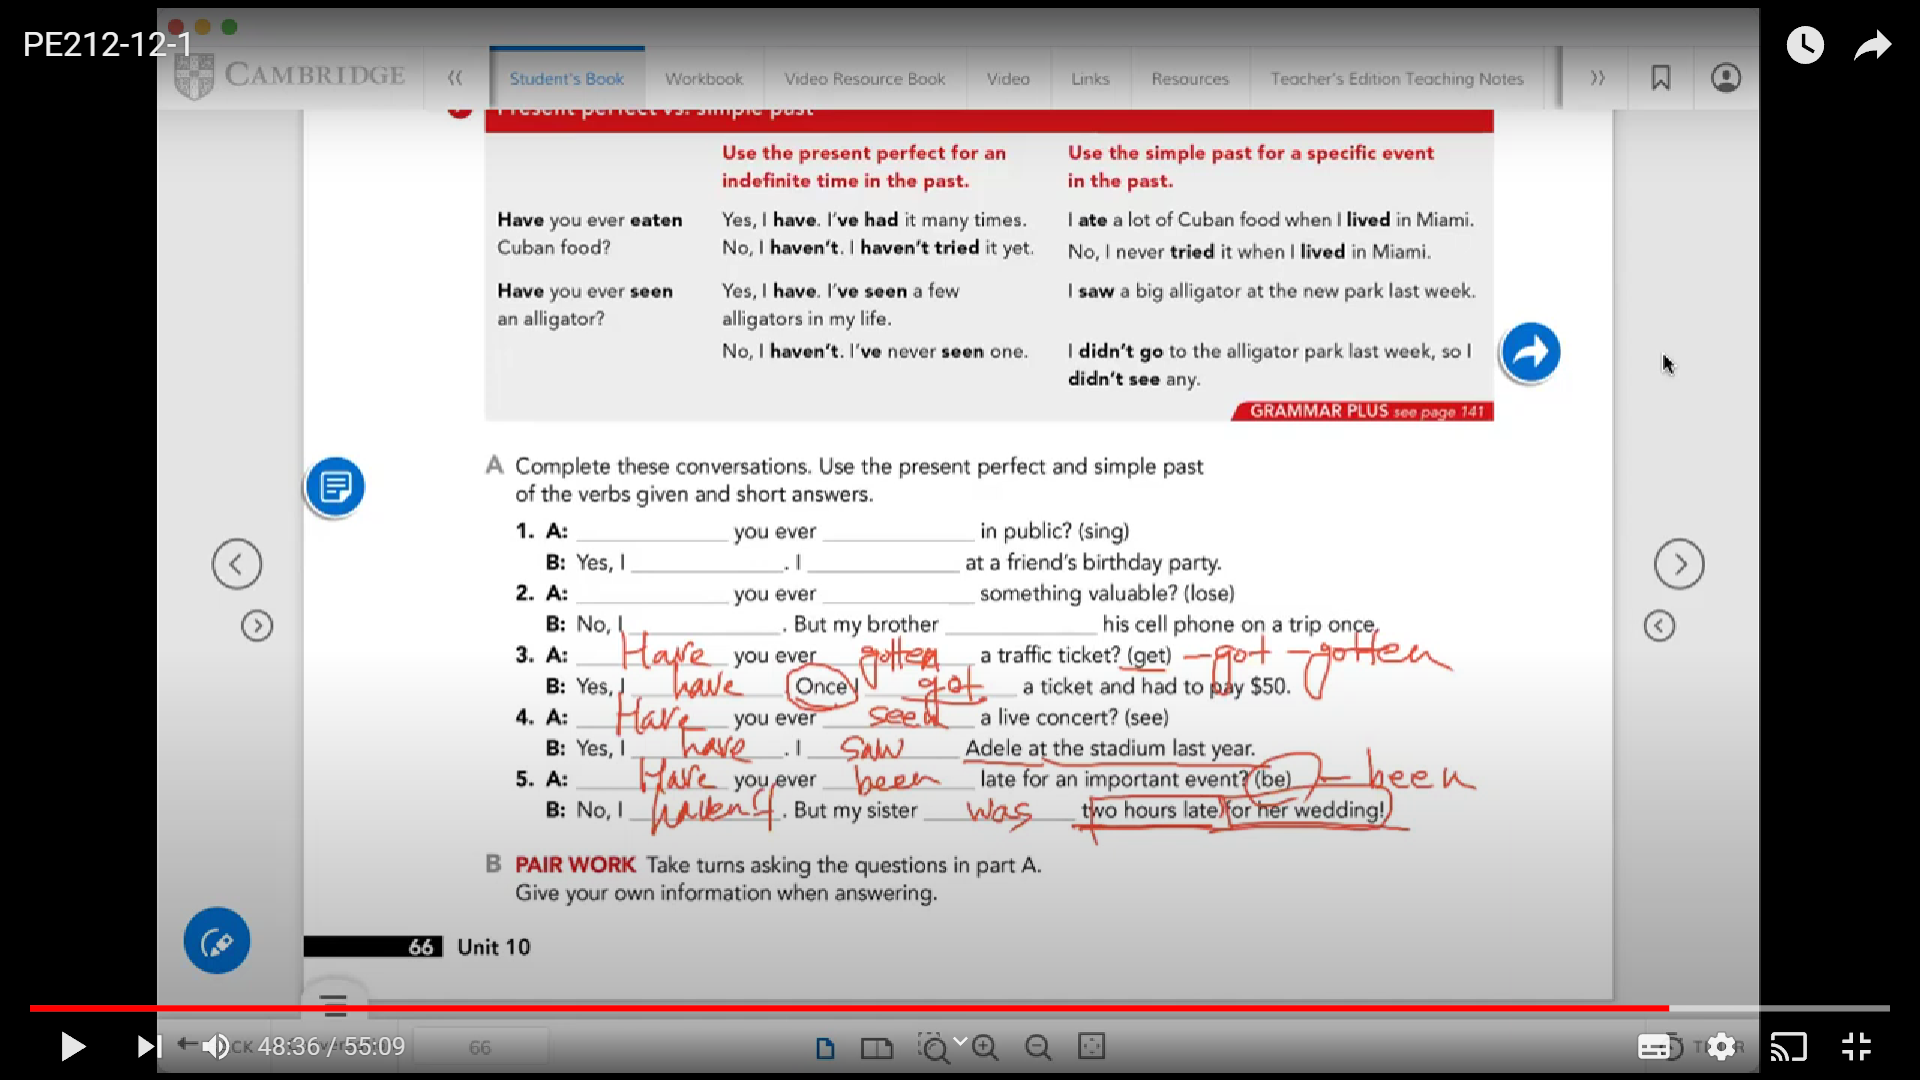 PE212-12-1
CAMBRIDGE
Student's Book Workbook Video Resource Book Video Links Resources Teacher's Edition Teaching Notes
Present perfect vs. simple past
Use the present perfect for an indefinite time in the past.
Use the simple past for a specific event in the past.
Have you ever eaten Cuban food?
Yes, I have. I've had it many times.
No, I haven't. I haven't tried it yet.
I ate a lot of Cuban food when I lived in Miami.
No, I never tried it when I lived in Miami.
Have you ever seen an alligator?
Yes, I have. I've seen a few alligators in my life.
No, I haven't. I've never seen one.
I saw a big alligator at the new park last week.
I didn't go to the alligator park last week, so I didn't see any.
GRAMMAR PLUS see page 141
A Complete these conversations. Use the present perfect and simple past
of the verbs given and short answers.
1. A: ____ you ever ____ in public? (sing)
B: Yes, I ____. I ____ at a friend's birthday party.
2. A: ____ you ever ____ something valuable? (lose)
B: No, I ____. But my brother ____ his cell phone on a trip once.
3. A: Have you ever gotten a traffic ticket? (get) – got – gotten
B: Yes, I have Once I got a ticket and had to pay $50.
4. A: Have you ever seen a live concert? (see)
B: Yes, I have. I saw Adele at the stadium last year.
5. A: Have you ever been late for an important event? (be) – been
B: No, I haven't. But my sister was two hours late for her wedding!
B PAIR WORK Take turns asking the questions in part A.
Give your own information when answering.
66 Unit 10
48:36 / 55:09
66